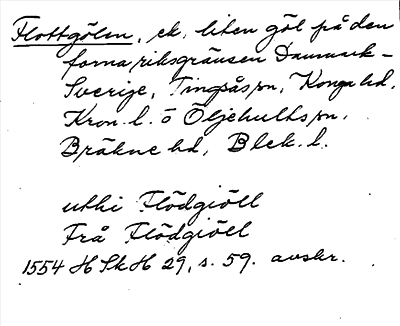 Flottgölen, ek. liten göl på den
forna riksgränsen Danmark-
Sverige, Tingsås sn, Konga hd,
Kron. l. o Öljehults sn,
Bräkne hd, Blek. l.
uthi Flödgiöll
Frå Flödgiöll
1554 HSkH 29, s. 59. avskr.